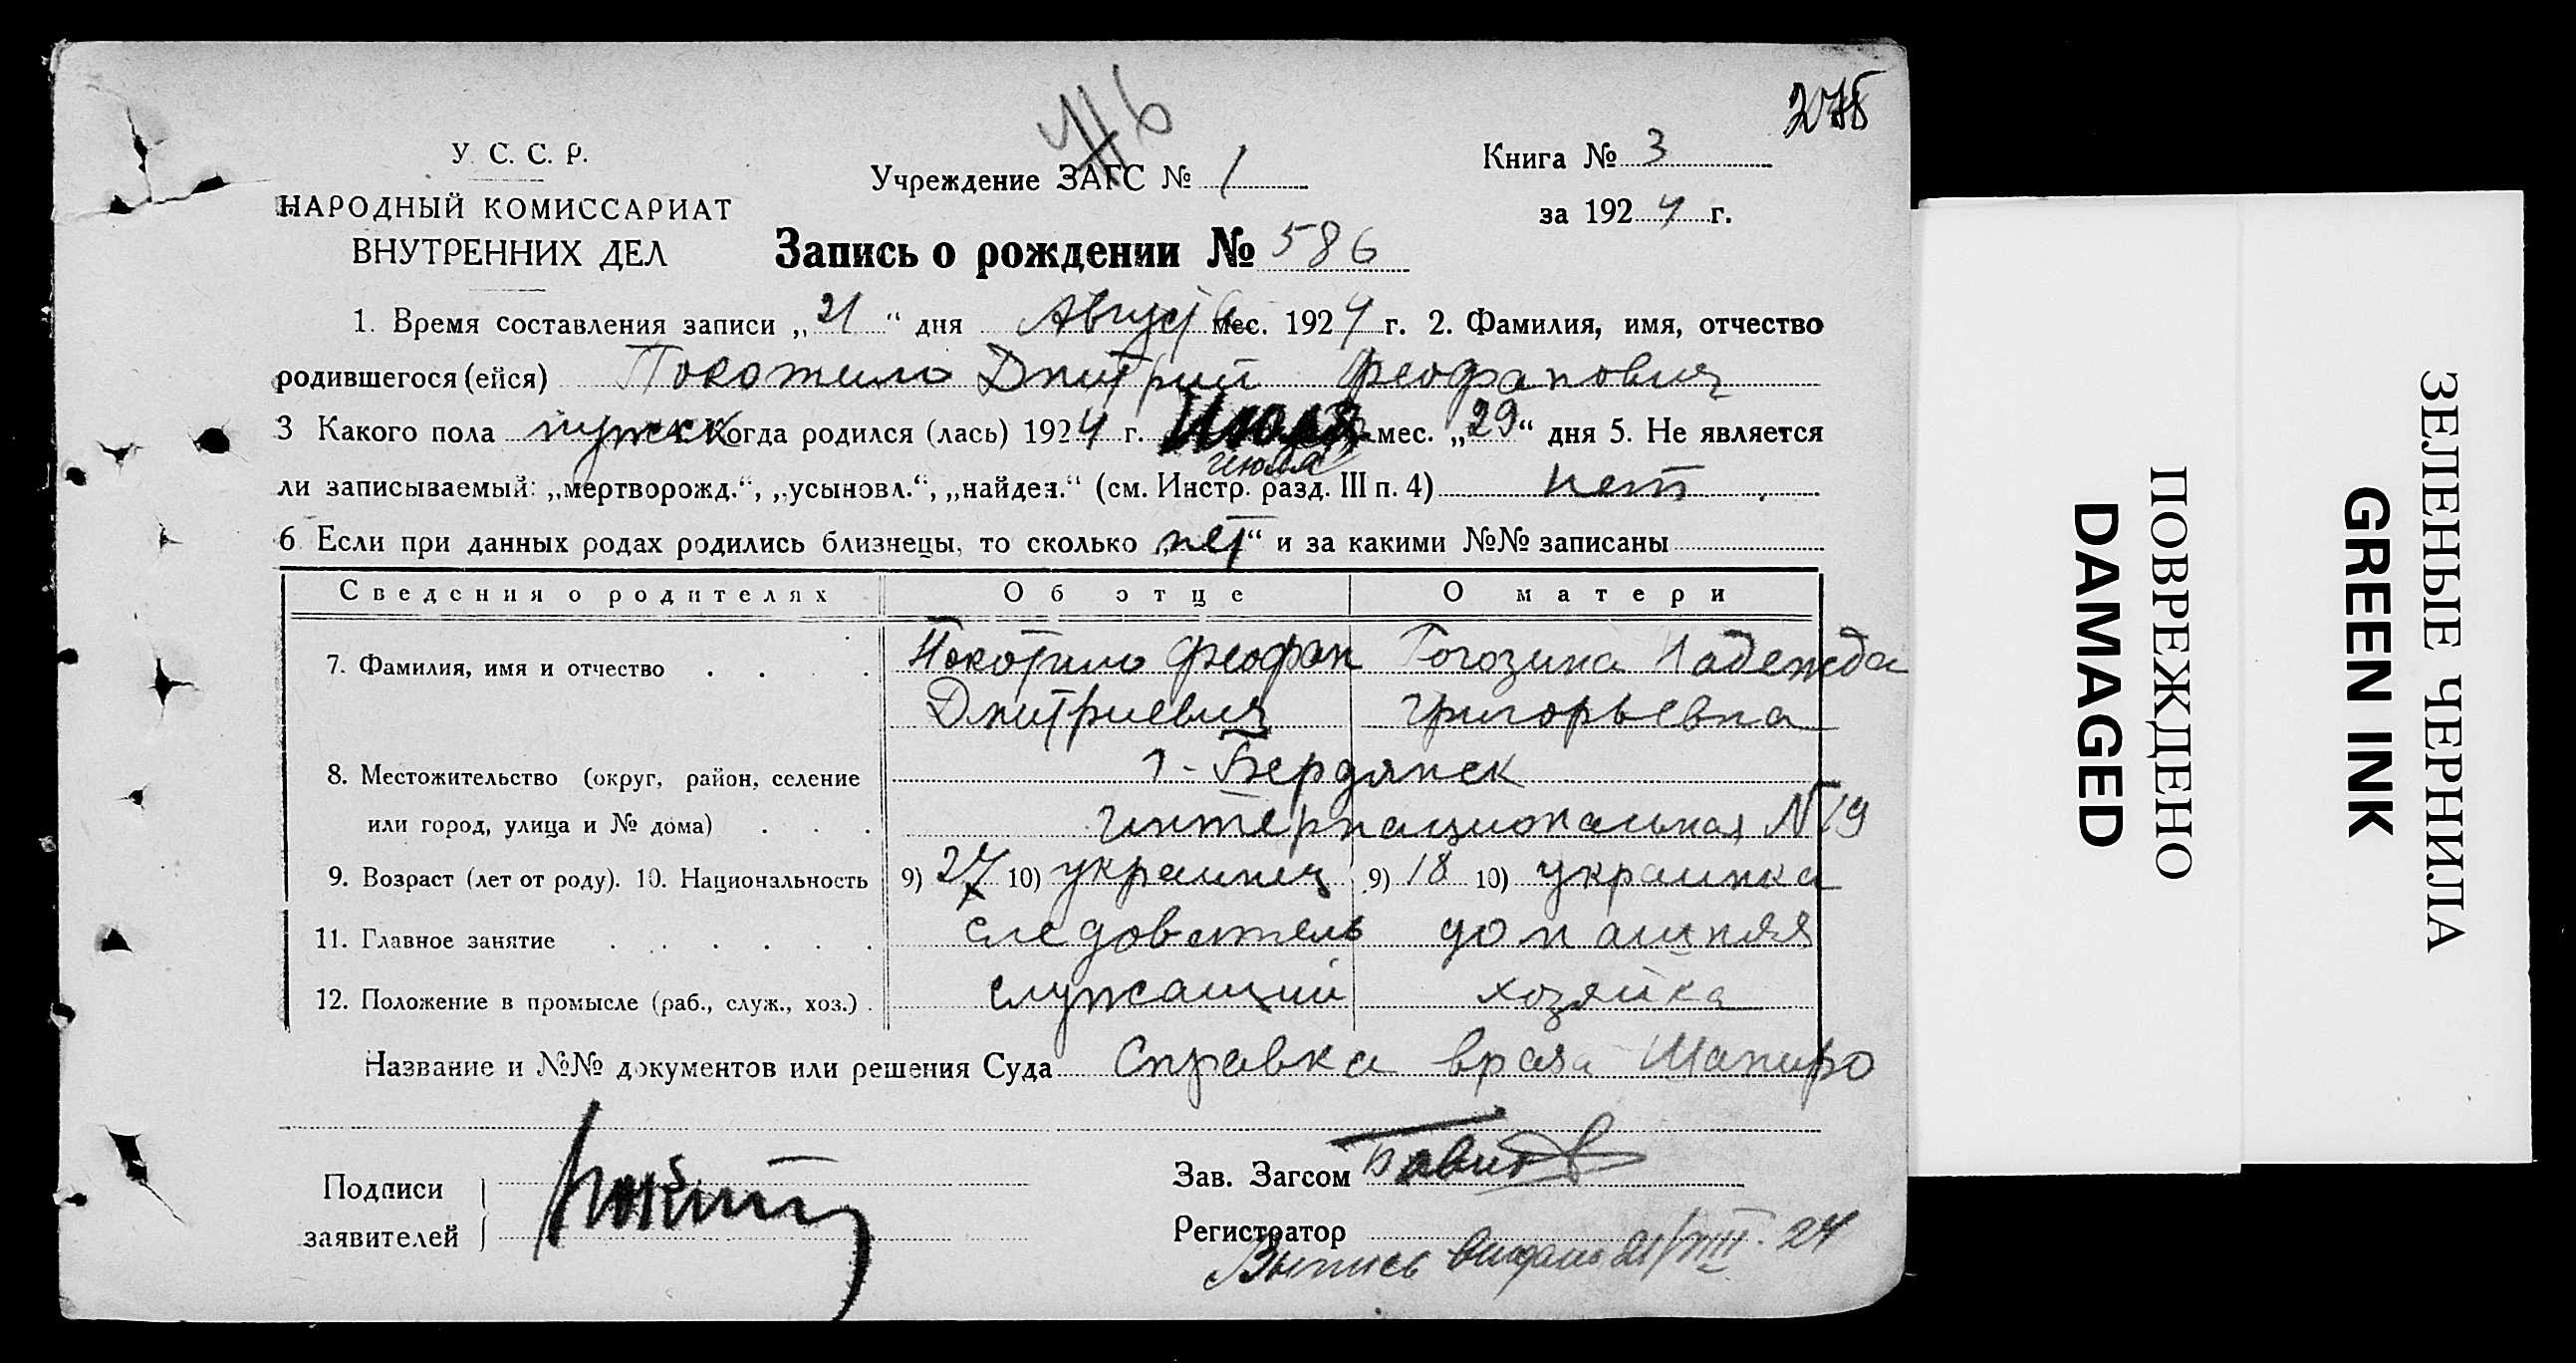 278
Н6
У. С. С. Р.
НАРОДНЫЙ КОМИССАРИАТ
ВНУТРЕННИХ ДЕЛ
Учреждение ЗАГС № 1
Книга № 3
за 1924 г.
Запись о рождении № 586
1. Время составления записи „21“ дня Август мес. 1924 г. 2. Фамилия, имя, отчество
родившегося (ейся) Покотило Дмитрий Феофанович
3 Какого пола мужск Когда родился (лась) 1924 г. Июля мес. „29“ дня 5. Не является
июля
ли записываемый: „мертворожд.“, „усыновл.“, „найден.“ (см. Инстр. разд. III п. 4) нет
6 Если при данных родах родились близнецы, то сколько „нет“ и за какими №№ записаны
Сведения о родителях Об отце О матери
7. Фамилия, имя и отчество Покотило Феофан Рогозина Надежда
Дмитриевич Григорьевна
8. Местожительство (округ, район, селение г. Бердянск
или город, улица и № дома) Интернациональная № 19
9. Возраст (лет от роду). 10. Национальность 9) 27 10) украинец 9) 18 10) украинка
11. Главное занятие следователь домашняя
12. Положение в промысле (раб., служ., хоз.) служащий хозяйка
Название и №№ документов или решения Суда Справка врача Шапиро
Подписи
заявителей
Зав. Загсом
Регистратор
Выпись выдана 21/VIII. 24
ПОВРЕЖДЕНО
DAMAGED
ЗЕЛЕНЫЕ ЧЕРНИЛА
GREEN INK